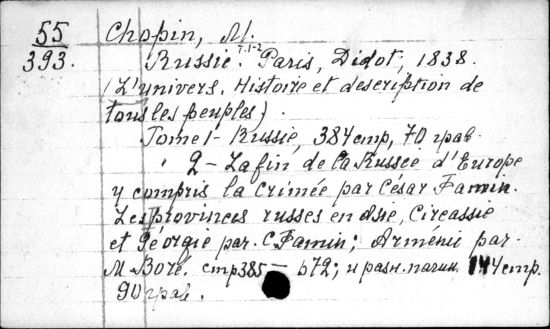 55
393.
Chopin, M.
Russie. т.1-2 Paris, Didot, 1838.
(L'univers. Histoire et description de
tous les peuples)
Tome I - Russie, 384 стр, 70 грав.
" 2 - La fin de la Russie d'Europe
y compris la Crimée par César Famin.
Les provinces russes en Asie, Circassie
et Géorgie par C. Famin; Arménie par
M. Boré. стр 385 - 672; и разн. пагин. 144 стр.
90 грав.